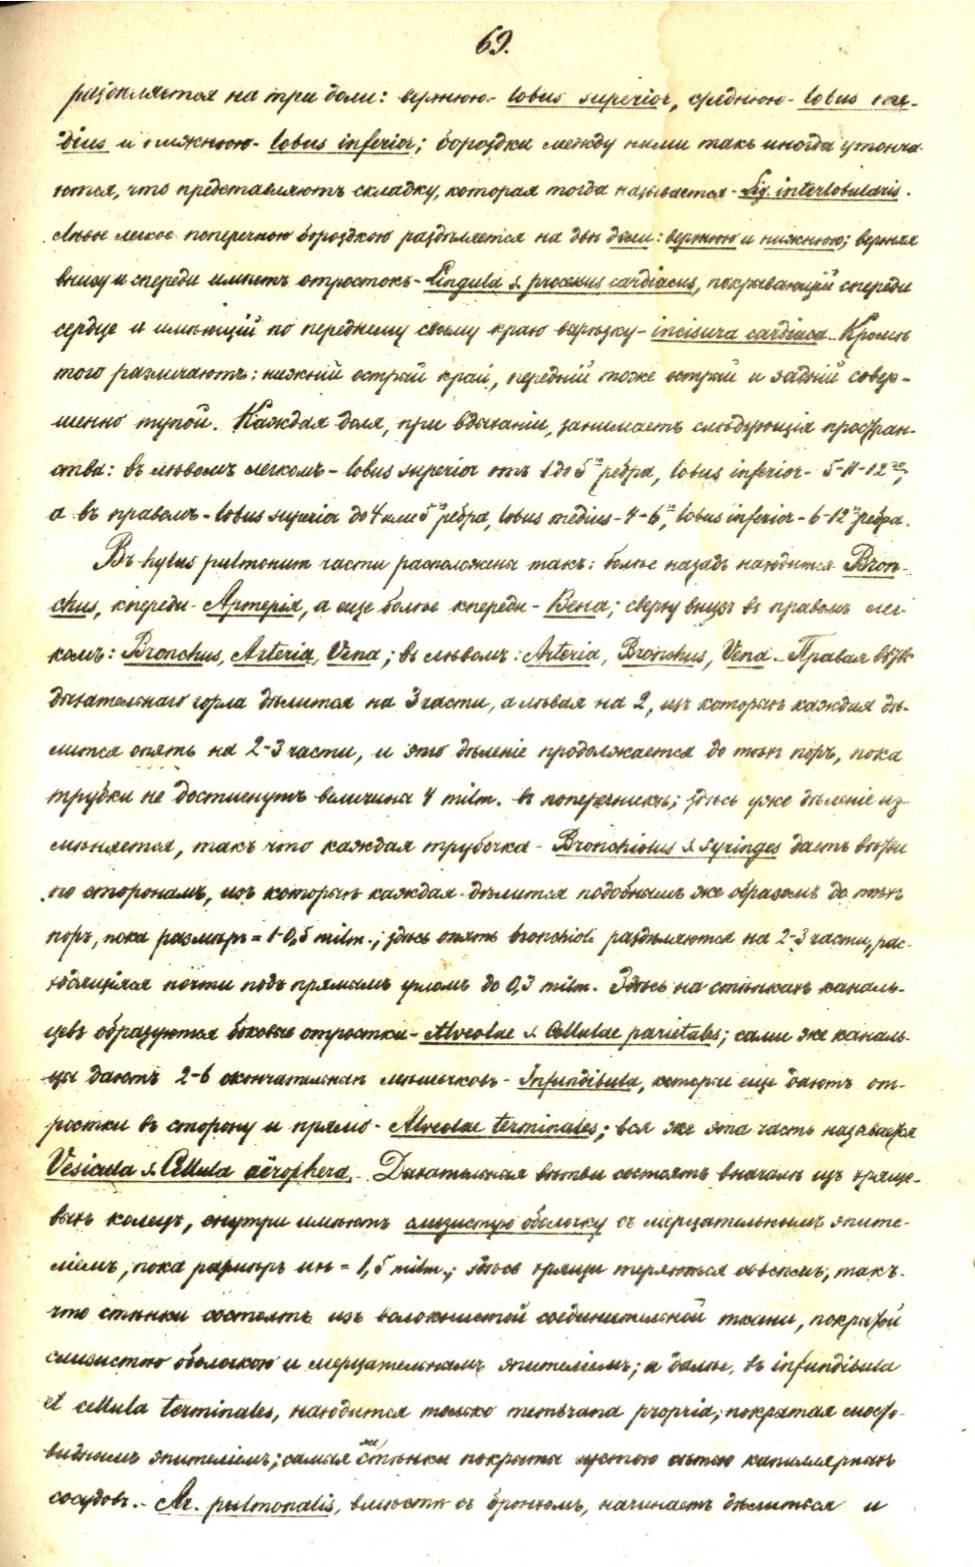 69.
раздѣляется на три доли: верхнюю - lobus superior, среднюю - lobus me-
dius и нижнюю - lobus inferior; бороздки между ними такъ иногда утонча-
ются, что представляютъ складку, которая тогда называется - Lig. interlobularis.
Лѣвое легкое поперечною бороздкою раздѣляется на двѣ доли: верхнюю и нижнюю; верхняя
внизу и спереди имѣетъ отростокъ - Lingula s. processus cardiacus, покрывающій спереди
сердце и имѣющій по переднему своему краю вырѣзку - incisura cardiaca. Кромѣ
того различаютъ: нижній острый край, передній тоже острый и задній совер-
шенно тупой. Каждая доля, при вдыханіи, занимаетъ слѣдующія простран-
ства: въ лѣвомъ легкомъ - lobus superior отъ 1 до 5го ребра, lobus inferior - 5-11-12го,
а въ правомъ - lobus superior до 4 или 5го ребра, lobus medius - 4-6го, lobus inferior - 6-12го ребра.
Въ hylus pulmonum части расположены такъ: болѣе назадъ находится Bron-
chus, кпереди - Артерія, а еще болѣе кпереди - Вена; сверху внизъ въ правомъ лег-
комъ: Bronchus, Arteria, Vena; въ лѣвомъ: Arteria, Bronchus, Vena. - Правая вѣтвь
дыхательнаго горла дѣлится на 3 части, а лѣвая на 2, изъ которыхъ каждая дѣ-
лится опять на 2-3 части, и это дѣленіе продолжается до тѣхъ поръ, пока
трубки не достигнутъ величины 4 milm. въ поперечникѣ; здѣсь уже дѣленіе из-
мѣняется, такъ что каждая трубочка - Bronchiolus s. syringes даетъ вѣтви
по сторонамъ, изъ которыхъ каждая дѣлится подобнымъ же образомъ до тѣхъ
поръ, пока размѣръ = 1-0,5 milm.; здѣсь опять bronchioli раздѣляются на 2-3 части, рас-
ходящіяся почти подъ прямымъ угломъ до 0,3 milm. Здѣсь на стѣнкахъ каналь-
цевъ образуются боковые отростки - Alveolae s. Cellulae parietales; сами же каналь-
цы даютъ 2-6 окончательныхъ мѣшечковъ - Infundibula, которые еще даютъ от-
ростки въ сторону и прямо - Alveolae terminales; вся же эта часть называется
Vesicula s. Cellula aërophera. - Дыхательныя вѣтви состоятъ вначалѣ изъ хряще-
выхъ колецъ, внутри имѣютъ слизистую оболочку съ мерцательнымъ эпите-
ліемъ, пока размѣръ ихъ = 1,5 milm.; здѣсь хрящи теряются совсѣмъ, такъ
что стѣнки состоятъ изъ волокнистой соединительной ткани, покрытой
слизистою оболочкою и мерцательнымъ эпителіемъ; а далѣе, въ infundibula
et cellula terminales, находится только membrana propria, покрытая
виднымъ эпителіемъ; самыя же стѣнки покрыты густою сѣтью капиллярныхъ
сосудовъ. - Ar. pulmonalis, вмѣстѣ съ бронхомъ, начинаетъ дѣлиться и